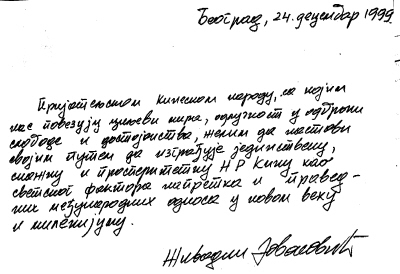 Београд, 24. децембар 1999.
Пријатељском кинеском народу, са којим
нас повезују циљеви мира, одлучност у одбрани
слободе и достојанства, желим да настави
својим путем да изграђује јединствену,
снажну и просперитетну НР Кину као
светског фактора напретка и правед-
них међународних односа у новом веку
и миленијуму.
Живадин Јовановић